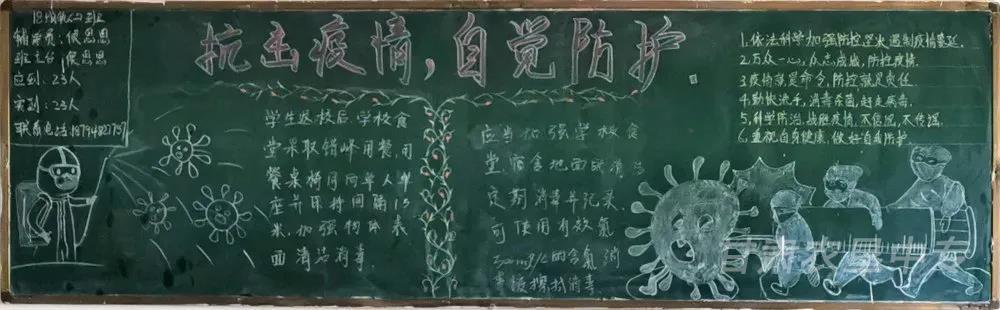 抗击疫情，自觉防护
辅导员：侯思思
班主任：侯思思
应到：23人
实到：23人
联系电话：18794822757
学生返校后，学校食
堂采取错峰用餐，用
餐桌椅同向单人单
座并保持间隔1.5
米，加强物体表
面清洁消毒
应当加强学校食
堂、宿舍地面的清洁
定期消毒并记录，
可使用有效氯
250mg/L的含氯消
毒液擦拭消毒
1.依法科学加强防控坚决遏制疫情蔓延.
2.万众一心，众志成城，防控疫情.
3.疫情就是命令，防控就是责任
4.勤快洗手，消毒杀菌，赶走病毒.
5.科学防治，战胜疫情，不信谣，不传谣.
6.重视自身健康，做好自我防护